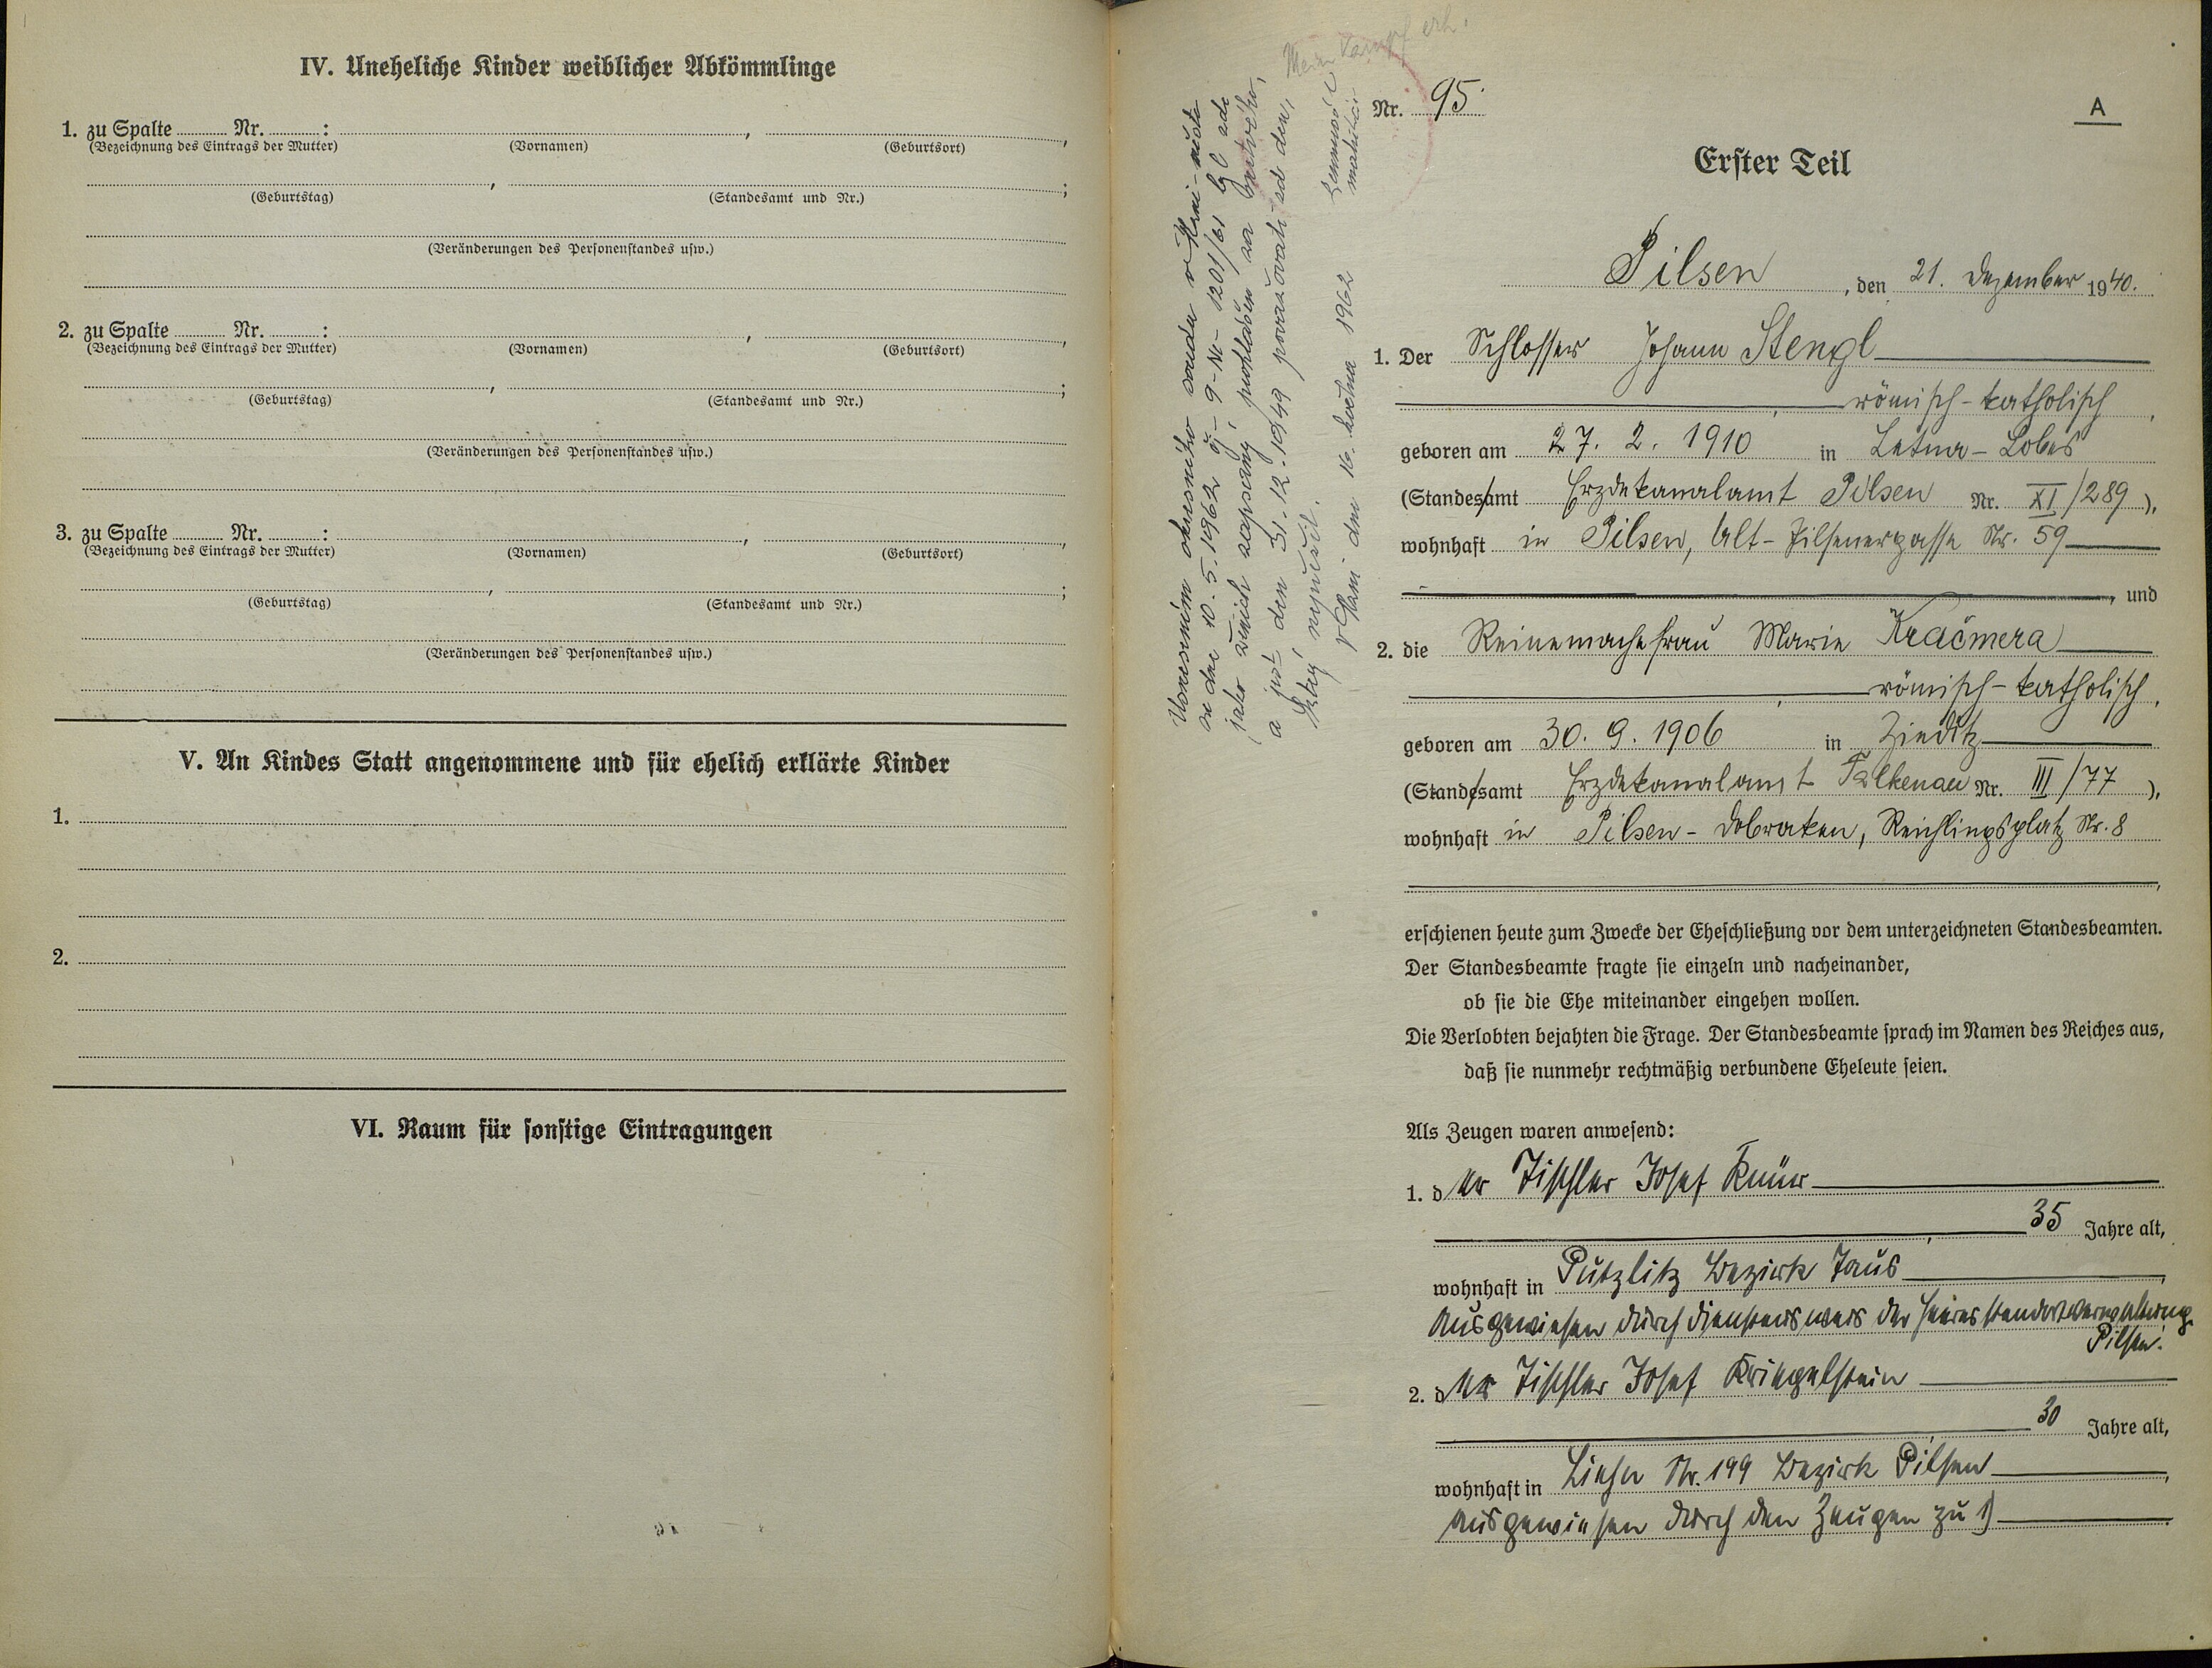 IV. Uneheliche Kinder weiblicher Abkömmlinge
1. zu Spalte Nr. : , ,
(Bezeichnung des Eintrags der Mutter) (Vornamen) (Geburtsort)
, ;
(Geburtstag) (Standesamt und Nr.)
(Veränderungen des Personenstandes usw.)
2. zu Spalte Nr. : , ,
(Bezeichnung des Eintrags der Mutter) (Vornamen) (Geburtsort)
, ;
(Geburtstag) (Standesamt und Nr.)
(Veränderungen des Personenstandes usw.)
3. zu Spalte Nr. : , ,
(Bezeichnung des Eintrags der Mutter) (Vornamen) (Geburtsort)
, ;
(Geburtstag) (Standesamt und Nr.)
(Veränderungen des Personenstandes usw.)
V. An Kindes Statt angenommene und für ehelich erklärte Kinder
1.
2.
VI. Raum für sonstige Eintragungen
Mein Kampf erh.
Usnesením okresního soudu v
ze dne 10. 5. 1962 9-Nc- 1201/61 byl zde
jako ženich zapsaný, prohlášen za mrtvého,
a jest den 31.12.1949 považovati za den,
který nepřežil.
dne 16. května 1962
Nr. 95
A
Erster Teil
Pilsen, den 21. Dezember 1940.
1. Der Schlosser Johann Stengl
, römisch-katholisch,
geboren am 27. 2. 1910 in Letna-Lobes
(Standesamt Erzdekanalamt Pilsen Nr. XI/289),
wohnhaft in Pilsen, Alt-Pilsenergasse Nr. 59
, und
2. die Reinemachefrau Marie Kračmera
, römisch-katholisch,
geboren am 30. 9. 1906 in Zieditz
(Standesamt Erzdekanalamt Falkenau Nr. III/77),
wohnhaft in Pilsen-Dobraken, Reichlingsplatz Nr. 8
,
erschienen heute zum Zwecke der Eheschließung vor dem unterzeichneten Standesbeamten.
Der Standesbeamte fragte sie einzeln und nacheinander,
ob sie die Ehe miteinander eingehen wollen.
Die Verlobten bejahten die Frage. Der Standesbeamte sprach im Namen des Reiches aus,
daß sie nunmehr rechtmäßig verbundene Eheleute seien.
Als Zeugen waren anwesend:
1. der Tischler Josef
, 35 Jahre alt,
wohnhaft in Putzlitz Bezirk Taus,
Ausgewiesen durch Dienstausweis der Heeresstandortverwaltung
Pilsen.
2. der Tischler Josef Kringelstein
, 30 Jahre alt,
wohnhaft in Nr. 199 Bezirk Pilsen,
ausgewiesen durch den Zeugen zu 1).